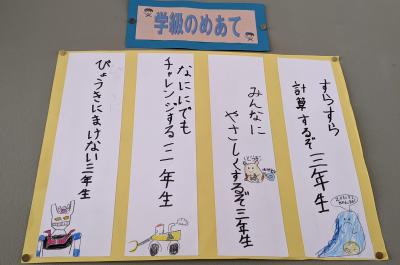 学級のめあて
すらすら
計算するぞ三年生
みんなに
やさしくするぞ三年生
なににでも
チャレンジする三年生
びょうきにまけない三年生